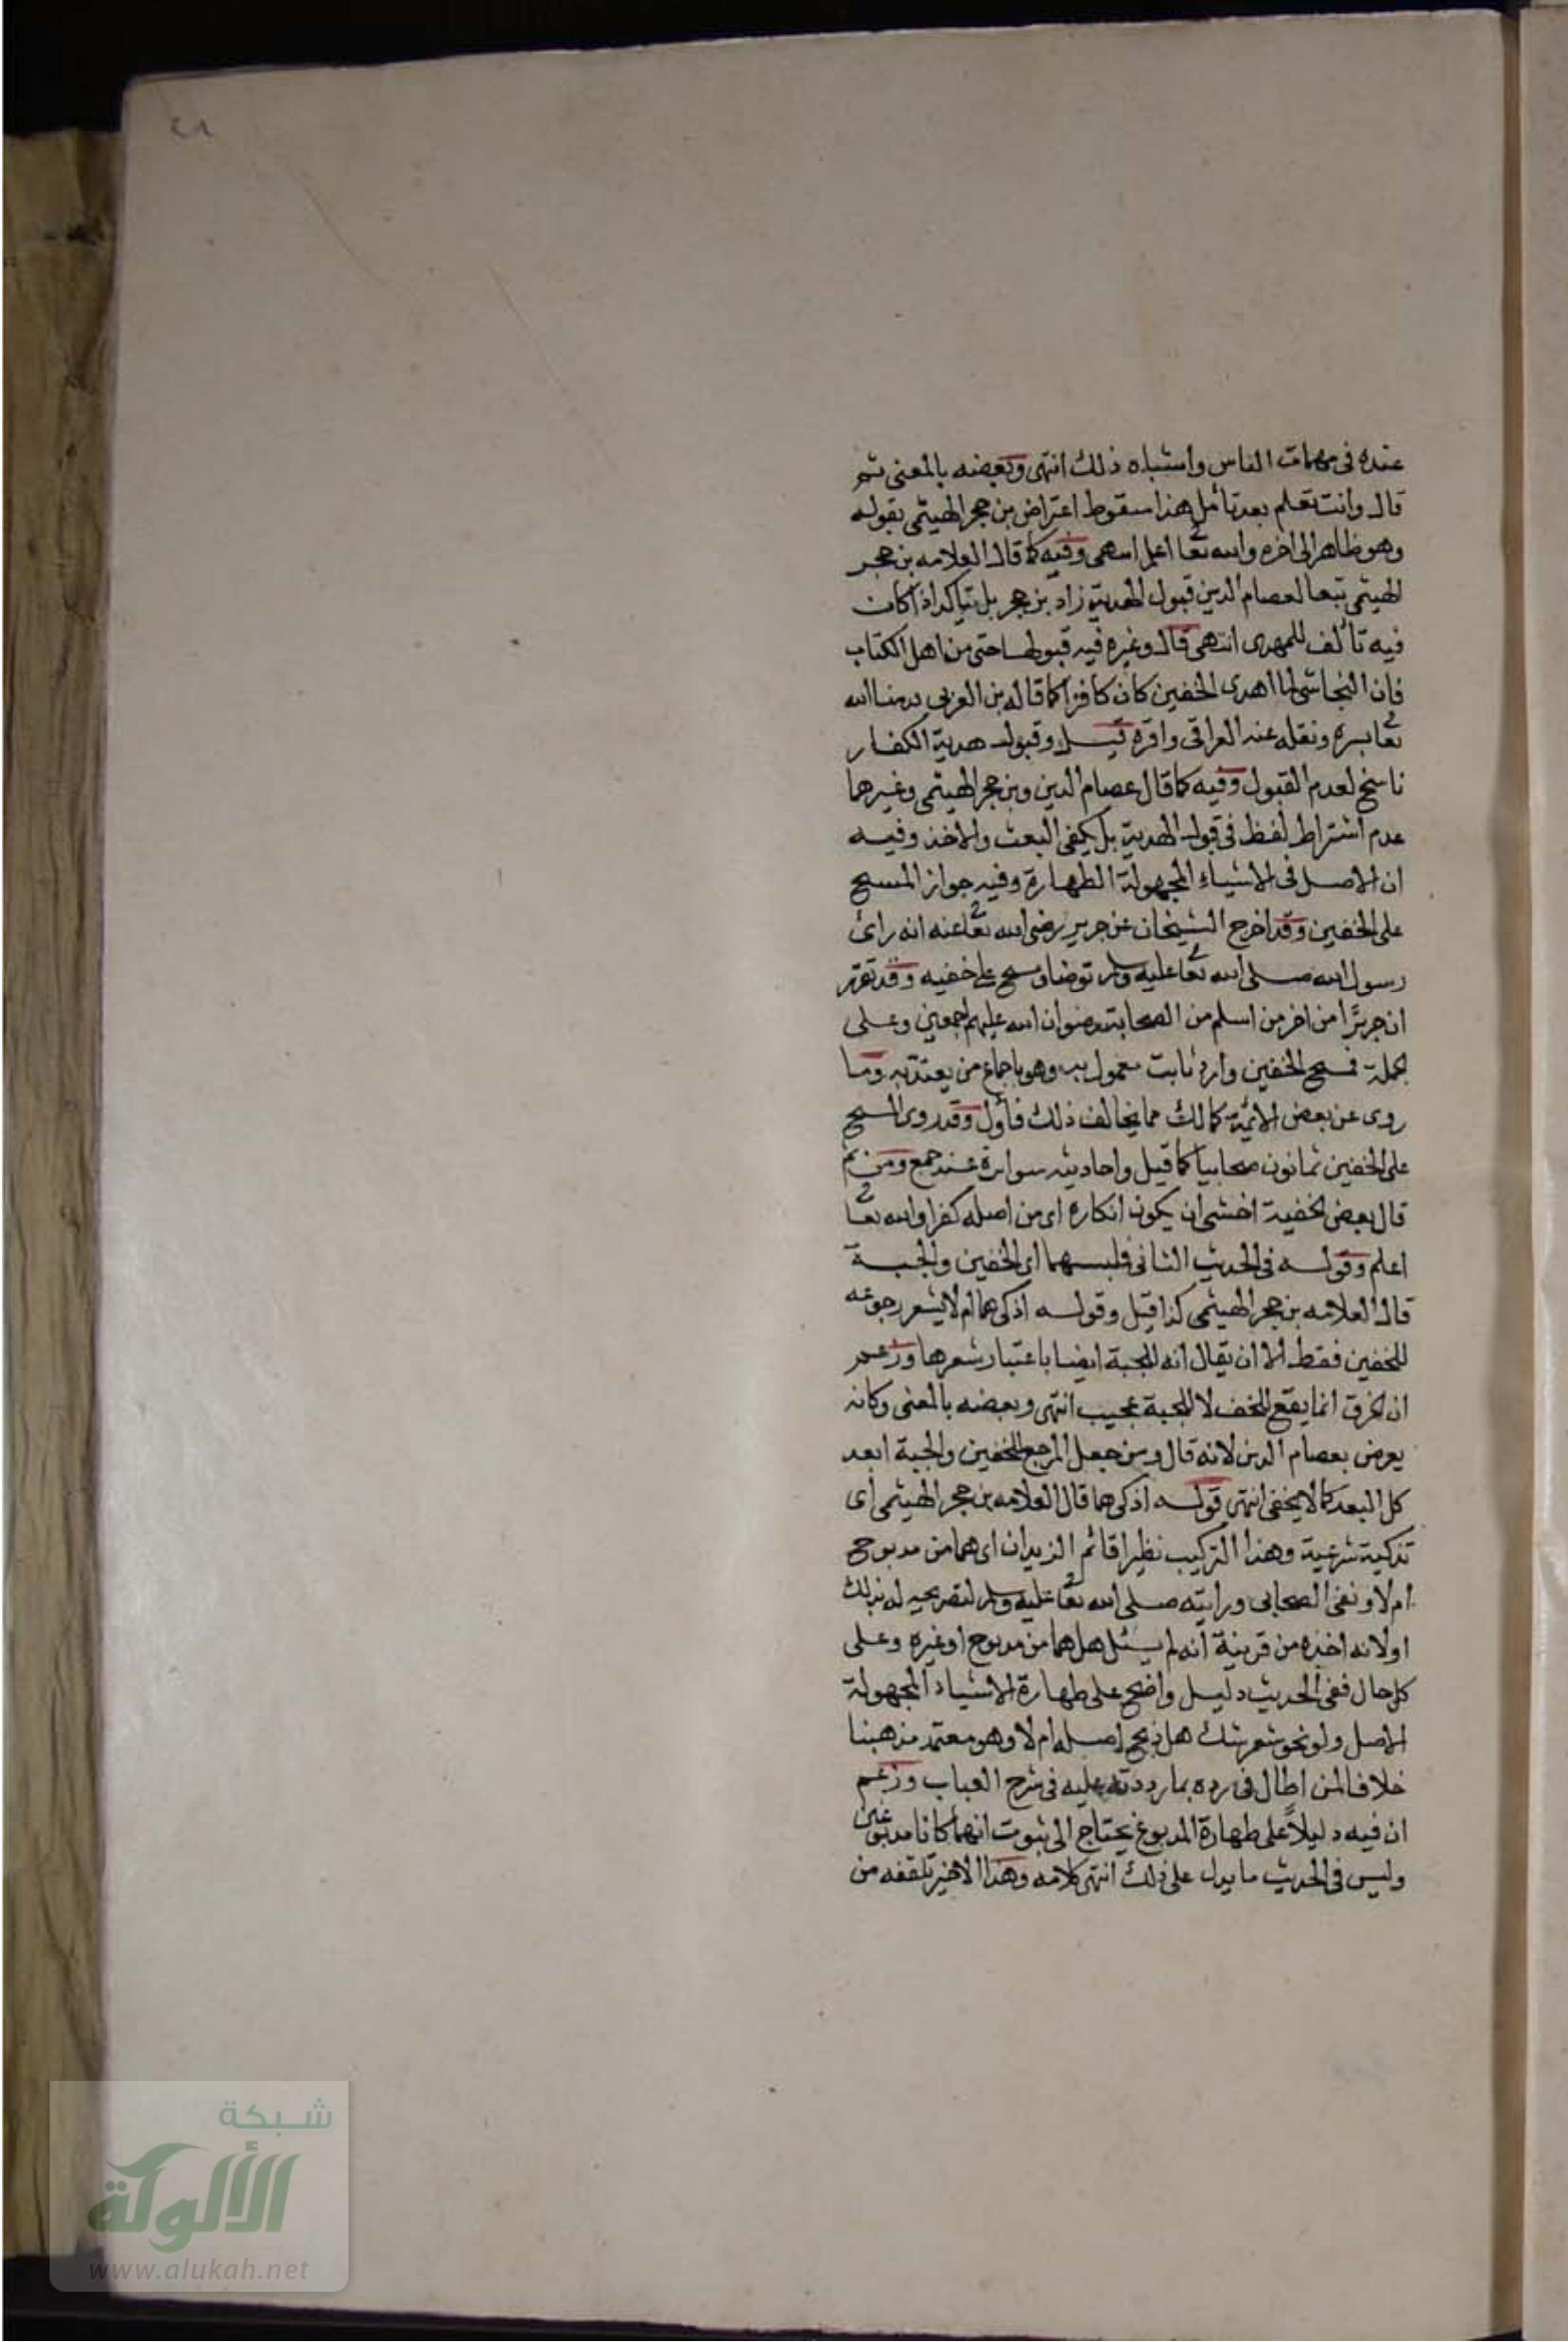 ٤٨
عنده فى مهمات الناس واستباه ذلك انتهى وبعضه بالمعنى ثم
قال وانت تعلم بعد تأمل هذا سقوط اعتراض بن حجر الهيثمى بقوله
وهو ظاهر الى اخره والله تعا اعلم انتهى وفيه كما قال العلامه بن حجر
الهيثمى تبعا لعصام الدين قبول الهدية زاد بن حجر بل يتاكد اذا كان
فيه تألف للمهدى انتهى قال وغيره فيه قبولها حتى من اهل الكتاب
فان النجاشى لما اهدى الخفين كان كافرا كما قاله بن العربى قدسنا الله
تعا بسره ونقله عنه العراقى واقره قيل وقبول هدية الكفار
ناسخ لعدم القبول وفيه كما قال عصام الدين وبن حجر الهيثمى وغيرهما
عدم اشتراط لفظ فى قبول الهدية بل يكفى البعث والاخذ وفيه
ان الاصل فى الاشياء المجهولة الطهارة وفيه جواز المسح
على الخفين وقد اخرج الشيخان عن جرير رضى الله تعا عنه انه رأى
رسول الله صلى الله تعا عليه وسلم توضا ومسح على خفيه وقد تقرر
ان جريرًا من اخر من اسلم من الصحابة رضوان الله عليهم اجمعين وعلى
الجملة فمسح الخفين وارد ثابت معمول به وهو باجماع من يعتد به وما
روى عن بعض الائمة كمالك مما يخالف ذلك فأول وقد روى المسح
على الخفين ثمانون صحابيا كما قيل واحاديثه متواترة عند جمع ومن ثم
قال بعض الحنفية اخشى ان يكون انكاره اى من اصله كفرا والله تعا
اعلم وقوله فى الحديث الثانى فلبسهما اى الخفين والجبة
قال العلامه بن حجر الهيثمى كذا قيل وقوله اذكى هما ام لا يشعر رجوعه
للخفين فقط الا ان يقال انه للجبة ايضا باعتبار شعرها وزعم
ان الخرق انما يقع للخف لا للجبة عجيب انتهى وبعضه بالمعنى وكانه
يعرض بعصام الدين لانه قال ومن جعل المرجع للخفين والجبة ابعد
كل البعد كما لا يخفى انتهى قوله اذكى هما قال العلامه بن حجر الهيثمى اى
تذكية شرعية وهذا التركيب نظير اقائم الزيدان اى هما من مذبوح
ام لا ونفى الصحابى درايته صلى الله تعا عليه وسلم لتصريحه له بذلك
او لانه اخذه من قرينة انه لم يسئل هل هما من مذبوح او غيره وعلى
كل حال ففى الحديث دليل واضح على طهارة الاشياء المجهولة
الاصل ولو نحو شعر شك هل ذبح اصله ام لا وهو معتمد مذهبنا
خلافا لمن اطال فى رده بما رددته عليه فى شرح العباب وزعم
ان فيه دليلاً على طهارة المدبوغ يحتاج الى ثبوت انهما كانا مدبوغين
وليس فى الحديث ما يدل على ذلك انتهى كلامه وهذا الاخير تلقفه من
شبكة
الألوكة
www.alukah.net